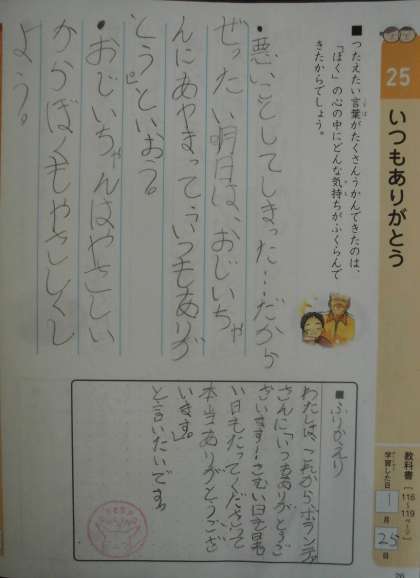 25
いつもありがとう
教科書 [116〜119ページ]
学習した日 1月25日
■つたえたい言葉がたくさんうかんできたのは、
「ぼく」の心の中にどんな気持ちがふくらんで
きたからでしょう。
・悪いことしてしまった…だから
ぜったい明日は、おじいちゃ
んにあやまって、「いつもありが
とう」といおう。
・おじいちゃんはやさしい
からぼくもやさしくし
よう。
■ふりかえり
わたしは、これからボランティア
さんに「いつもありがとうご
ざいます!さむい日も暑
い日もたってくださって
本当ありがとうござ
います。」
と言いたいです。